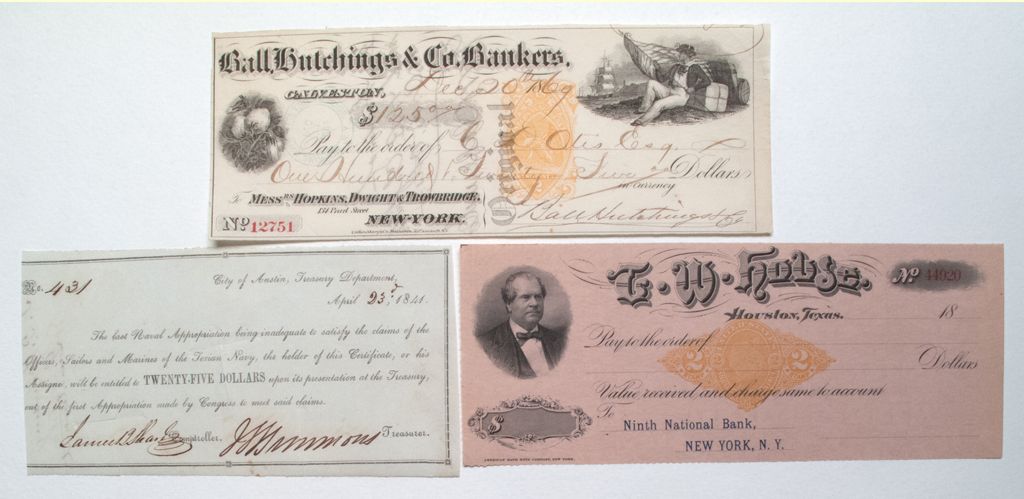 Ball, Hutchings & Co. Bankers,
GALVESTON, Dec 20th 1869
$125 00/100
Pay to the order of C. Otis Esq.
One Hundred & Twenty Five Dollars
in currency
To MESSRS HOPKINS, DWIGHT & TROWBRIDGE,
134 Pearl Street
NEW-YORK.
Ball Hutchings & Co
No 12751
Original
No. 431
City of Austin, Treasury Department,
April 23d, 1841.
The last Naval Appropriation being inadequate to satisfy the claims of the
Officers, Sailors and Marines of the Texian Navy, the holder of this Certificate, or his
Assigns, will be entitled to TWENTY-FIVE DOLLARS upon its presentation at the Treasury,
out of the first Appropriation made by Congress to meet said claims.
Comptroller, Treasurer.
T. W. House.
No 44920
HOUSTON, TEXAS. 18
Pay to the order of
2 2
Dollars
Value received and charge same to account
To
$
Ninth National Bank,
NEW YORK, N. Y.
AMERICAN BANK NOTE COMPANY, NEW YORK.